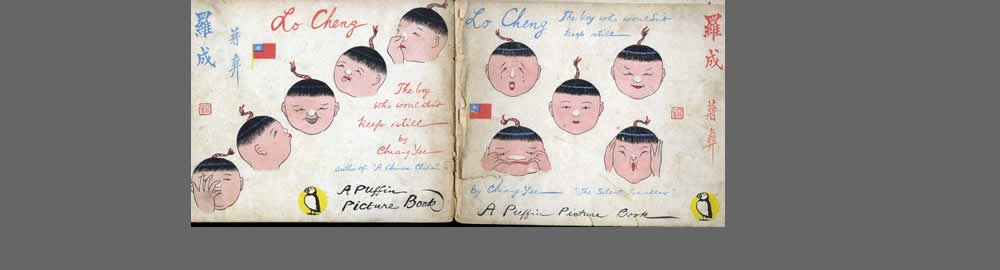 羅成
彝
Lo Cheng
The boy
who wouldn't
keep still
by
Chiang Yee
author of "A Chinese
A Puffin
Picture Book
Lo Cheng The boy who wouldn't
keep still
羅成
彝
by Chiang Yee "The Silent Traveller"
A Puffin Picture Book